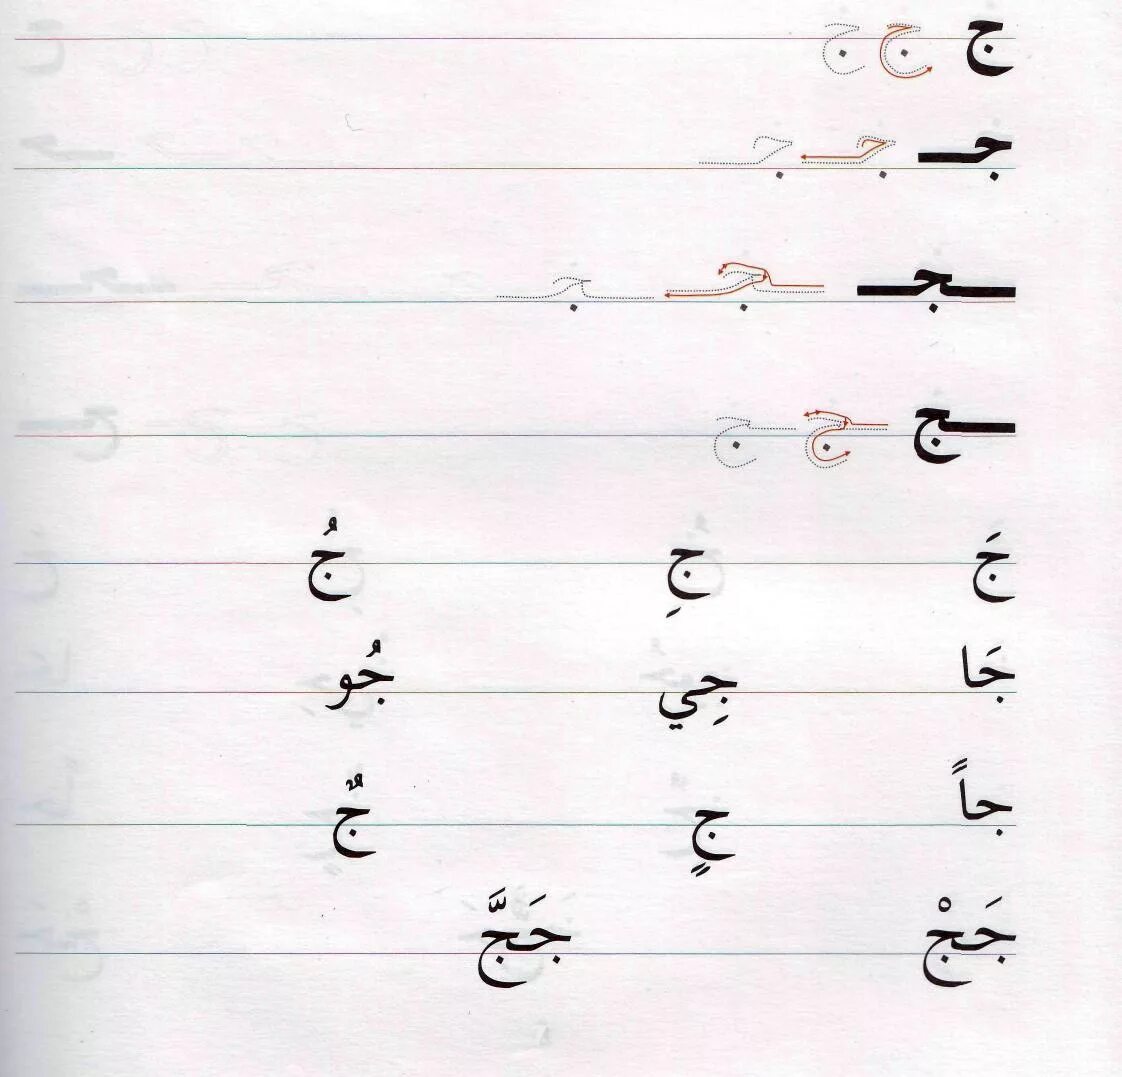 ج ج ج
جـ جـ جـ
ـجـ ـجـ ـجـ
ـج ـج ـج
جَ جِ جُ
جَا جِي جُو
جاً جٍ جٌ
جَجْ جَجَّ